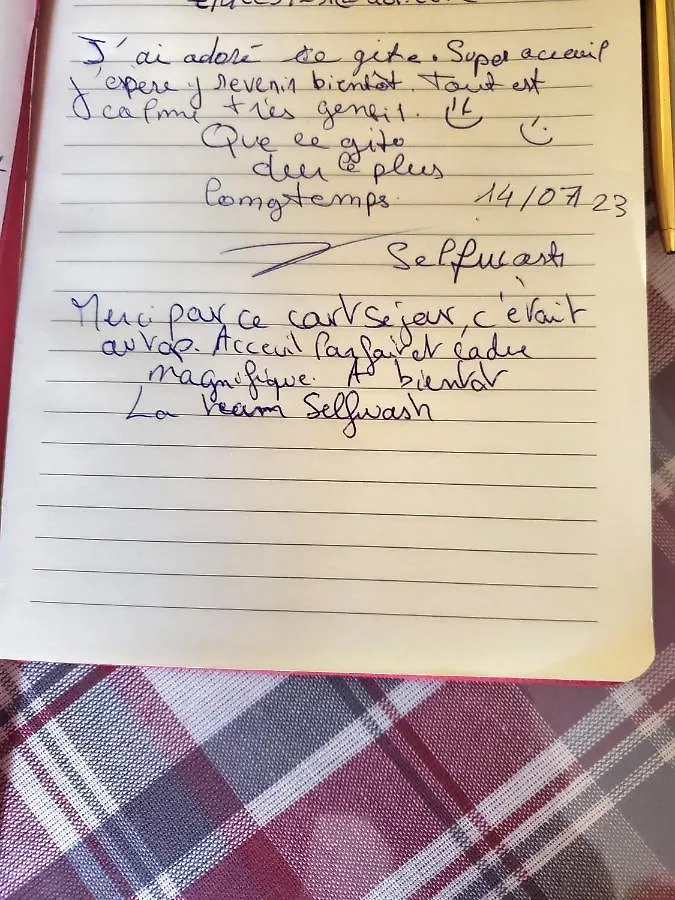 J'ai adoré ce gite. Super acceuil
j'espere y revenir bientôt. Tout est
calme très gentil.
Que ce gite
dur le plus
longtemps. 14/07/23
Selfwash
Merci par ce cart séjour, c'était
au top. Acceuil parfait et cadre
magnifique. A bientot
La team Selfwash